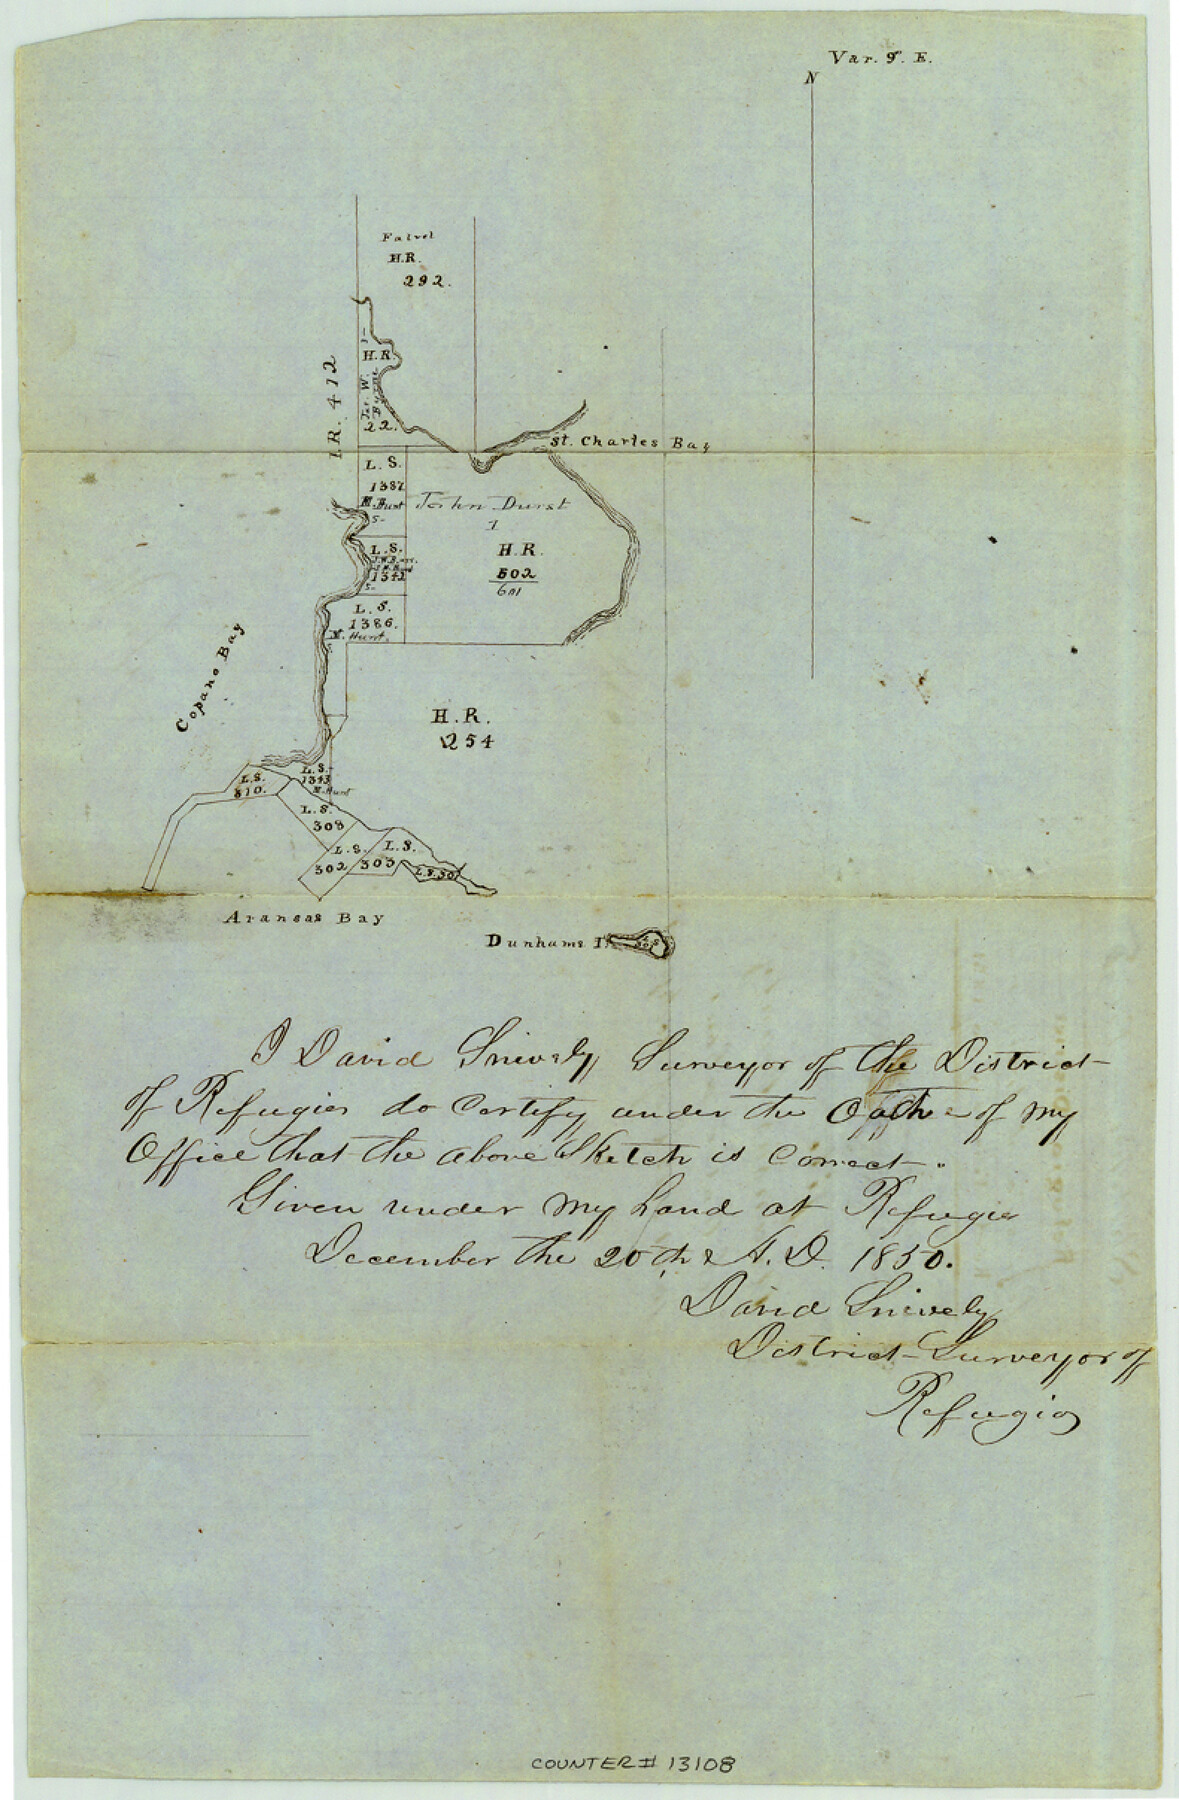 Var. 9°. E.
N
Fatvel
H.R.
292.
I.R. 412
H.R.
Jer. W.
Byrne
22.
St. Charles Bay
L. S.
1387
M. Hunt
5-
John Durst
1
H.R.
602
601
L. S.
1342
5-
L. S.
1386.
M. Hunt.
Copano Bay
H.R.
254
L.S.
310.
L.S.
1343
M. Hunt
L.S.
308
L.S.
302
L.S.
303
Aransas Bay
Dunhams I.
I David Snively Surveyor of the District
of Refugio do Certify under the Oath of my
Office that the above Sketch is Correct.
Given under my hand at Refugio
December the 20th A.D. 1850.
David Snively
District Surveyor of
Refugio
COUNTER # 13108